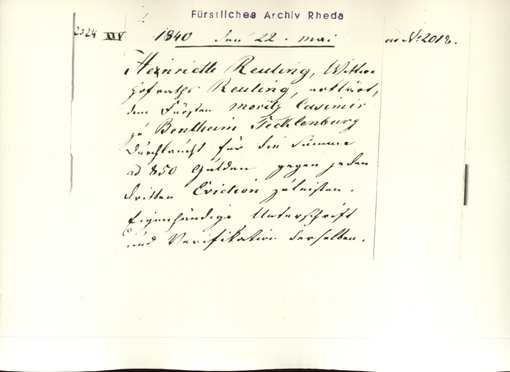 Fürstliches Archiv Rheda
XIV 1840 den 22. mai No 2018.
Henriette Reuling, Wittwe
Hofraths Reuling, erklärt,
dem Fürsten Moritz Casimir
zu Bentheim Tecklenburg
Durchlaucht für die Summe
ad 850 Gulden gegen jeden
dritten Eviction zu leisten.
Eigenhändige Unterschrift
und Verifikation derselben.